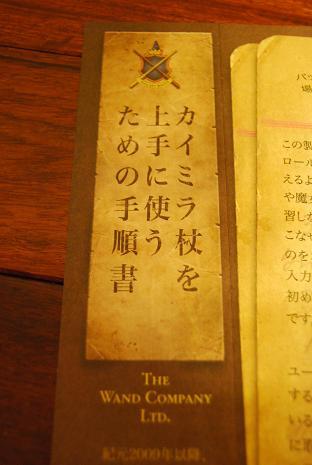 カイミラ杖を
上手に使う
ための手順書
THE
WAND COMPANY
LTD.
紀元2009年以降、
バッ
場
この製
ロール
えるよ
や魔女
習しな
のを
入力
初め
です
ユー
する
いる